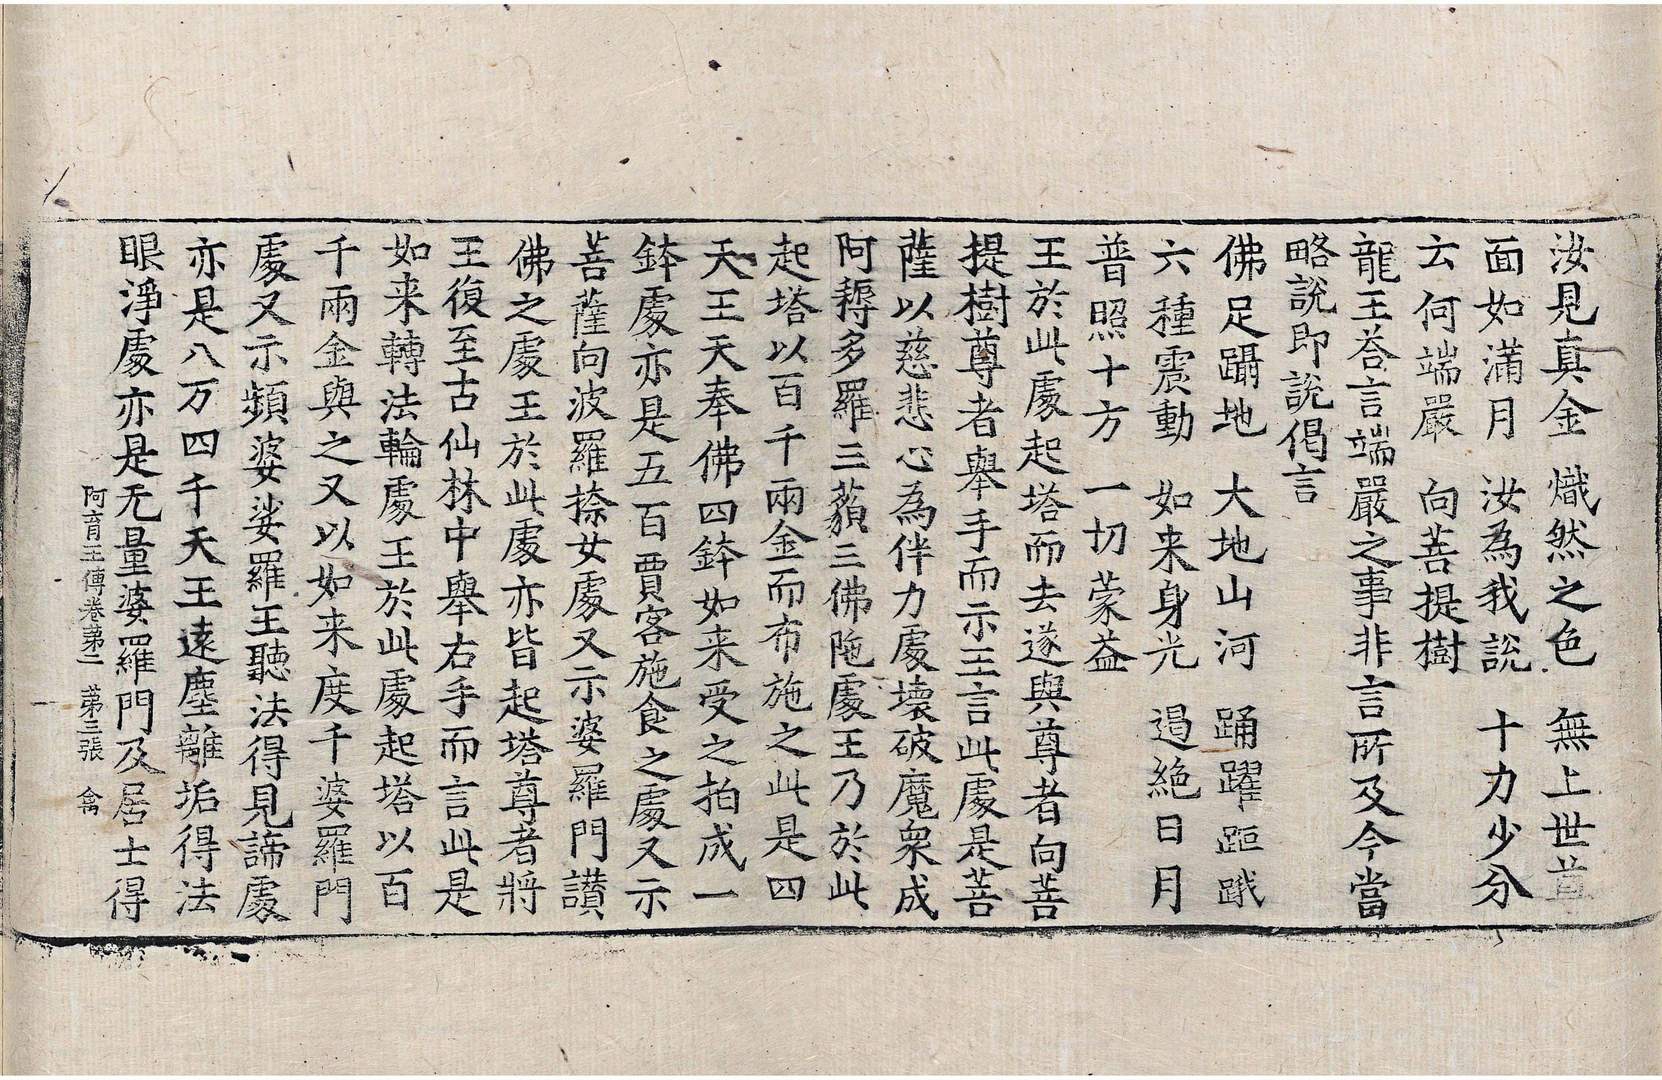 汝見真金　熾然之色　無上世尊
面如滿月　汝為我說　十力少分
云何端嚴　向菩提樹
龍王荅言端嚴之事非言所及今當
略說即說偈言
佛足躡地　大地山河　踊躍距跳
六種震動　如来身光　過絶日月
普照十方　一切蒙益
王於此處起塔而去遂與尊者向菩
提樹尊者舉手而示王言此處是菩
薩以慈悲心為伴力處壞破魔衆成
阿耨多羅三藐三佛陁處王乃於此
起塔以百千兩金而布施之此是四
天王天奉佛四鉢如来受之拍成一
鉢處亦是五百賈客施食之處又示
菩薩向波羅捺女處又示婆羅門讃
佛之處王於此處亦皆起塔尊者將
王復至古仙林中舉右手而言此是
如来轉法輪處王於此處起塔以百
千兩金與之又以如来度千婆羅門
處又示頻婆娑羅王聽法得見諦處
亦是八万四千天王遠塵離垢得法
眼淨處亦是无量婆羅門及居士得
阿育王傳卷苐二　苐三張　禽